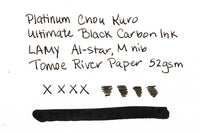 Platinum Chou Kuro
Ultimate Black Carbon Ink
LAMY Al-star, M nib
Tomoe River Paper 52gsm
x x x x